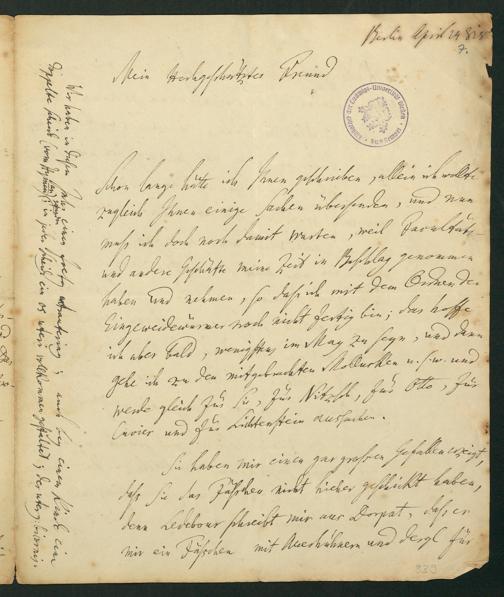 Berlin April 24 8
7.
Mein Hochgeschätzter Freund
Schon lange hätte ich Ihnen geschrieben, allein ich wollte
zugleich Ihnen einige Sachen übersenden, und nun
muß ich doch noch damit warten, weil Facultäts-
und andere Geschäfte meine Zeit in Beschlag genommen
haben und nehmen, so daß ich mit dem Ordnen der
Eingeweidewürmer noch nicht fertig bin; das hoffe
ich aber bald, wenigstens im May zu seyn, und dann
gehe ich zu den mitgebrachten Mollusken u.s.w. und
werde gleich für Sie, für Nitzsch, für Otto, für
Cuvier und für Lichtenstein aussuchen.
Sie haben mir einen gar grossen Gefallen erzeigt,
daß Sie das Fäßchen nicht hieher geschickt haben,
denn Ledebour schreibt mir aus Dorpat, daß er
mir ein Fäßchen mit Auerhühnern und dergl für
Wir haben in diesen
doppelte in jeder ein os uteri vollkommen gestaltet;
bei einem Kinde eine
339